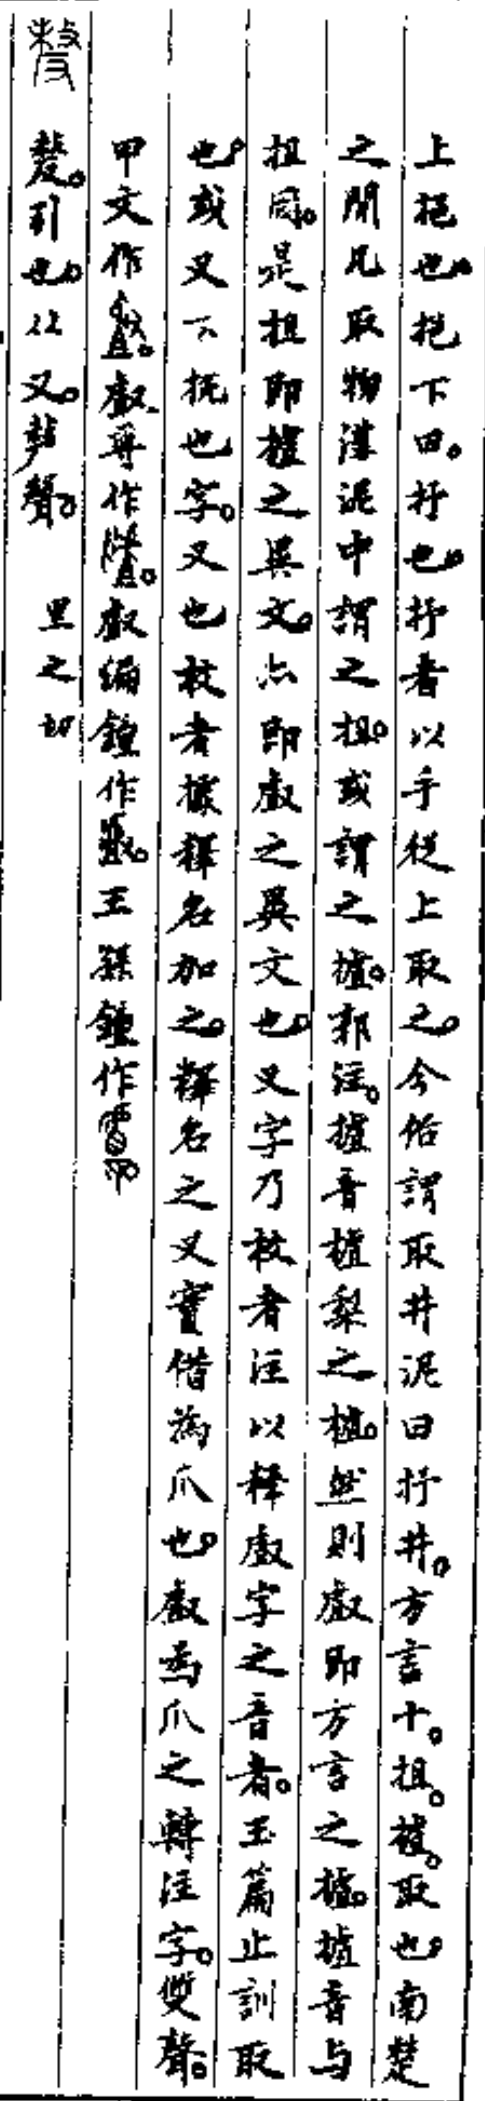 上挹也。挹下曰。抒也。抒者以手從上取之。今俗謂取井泥曰抒井。方言十。抯。摣。取也。南楚
之閒凡取物溝泥中謂之抯。或謂之摣。郭注。摣音樝梨之樝。然則叡即方言之摣。摣音与
抯同。是抯即摣之異文。亦即叡之異文也。又字乃校者注以釋叡字之音者。玉篇止訓取
也。或又下挹也字。又也校者據釋名加之。釋名之叉實借為爪也。叡為爪之轉注字。雙聲。
甲文作。叡尊作。叡編鐘作。王孫鐘作
𠭰 𠭰。引也。从又。𠩺聲。 里之切